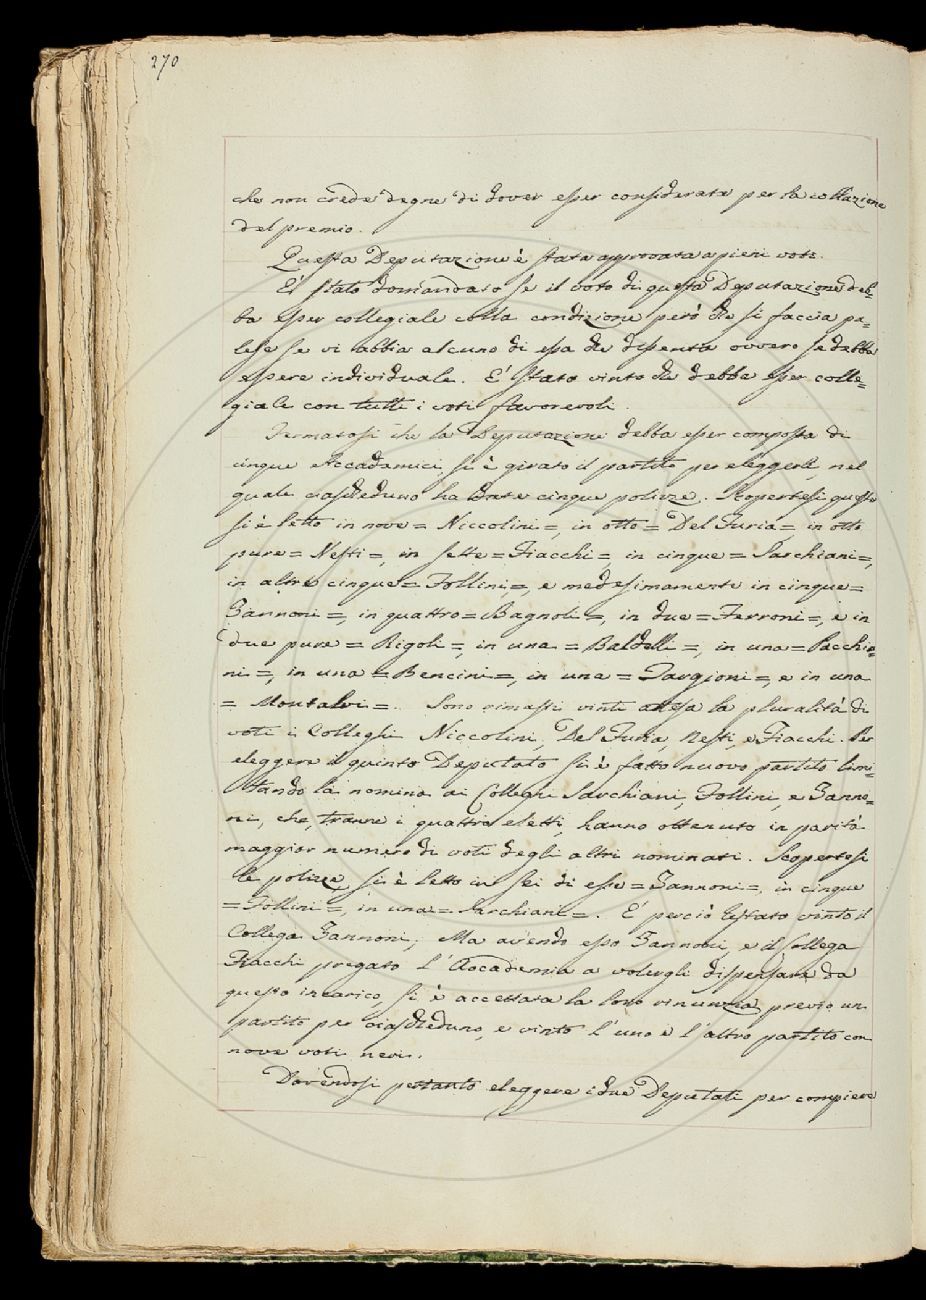 270
che non crede degne di dover esser considerate per la collazione
del premio.
Questa Deputazione è stata approvata a pieni voti.
E' stato domandato se il voto di questa Deputazione deb=
ba esser collegiale colla condizione però che si faccia pa=
lese se vi abbia alcuno di essa che dissenta ovvero se debba
essere individuale. E' stato vinto che debba esser colle=
giale con tutti i voti favorevoli.
Fermatosi che la Deputazione debba esser composta di
cinque Accademici si è girato il partito per eleggerli, nel
quale ciascheduno ha date cinque polizze. Scopertesi queste
si è letto in nove = Niccolini =, in otto = Del Furia =, in otto
pure = Nesti =, in sette = Fiacchi =, in cinque = Sarchiani =,
in altre cinque = Follini =, e medesimamente in cinque =
Zannoni =, in quattro = Bagnoli =, in due = Ferroni =, e in
due pure = Rigoli =, in una = Baldelli =, in una = Pacchia=
ni =, in una = Bencini =, in una = Targioni =, e in una
= Montalvi =. Sono rimasti vinti attesa la pluralità di
voti i Colleghi Niccolini, Del Furia, Nesti, e Fiacchi. Per
eleggere il quinto Deputato si è fatto nuovo partito limi=
tando la nomina ai Colleghi Sarchiani, Follini, e Zanno=
ni, che, tranne i quattro eletti, hanno ottenuto in parità
maggior numero di voti degli altri nominati. Scopertesi
le polizze, si è letto in sei di esse = Zannoni =, in cinque
= Follini =, in una = Sarchiani =. E' perciò restato vinto il
Collega Zannoni; Ma avendo esso Zannoni, e il Collega
Fiacchi pregato l'Accademia a volergli dispensare da
questo incarico, si è accettata la loro rinunzia previo un
partito per ciascheduno, e vinto l'uno e l'altro partito con
nove voti neri.
Dovendosi pertanto eleggere i due Deputati per compiere